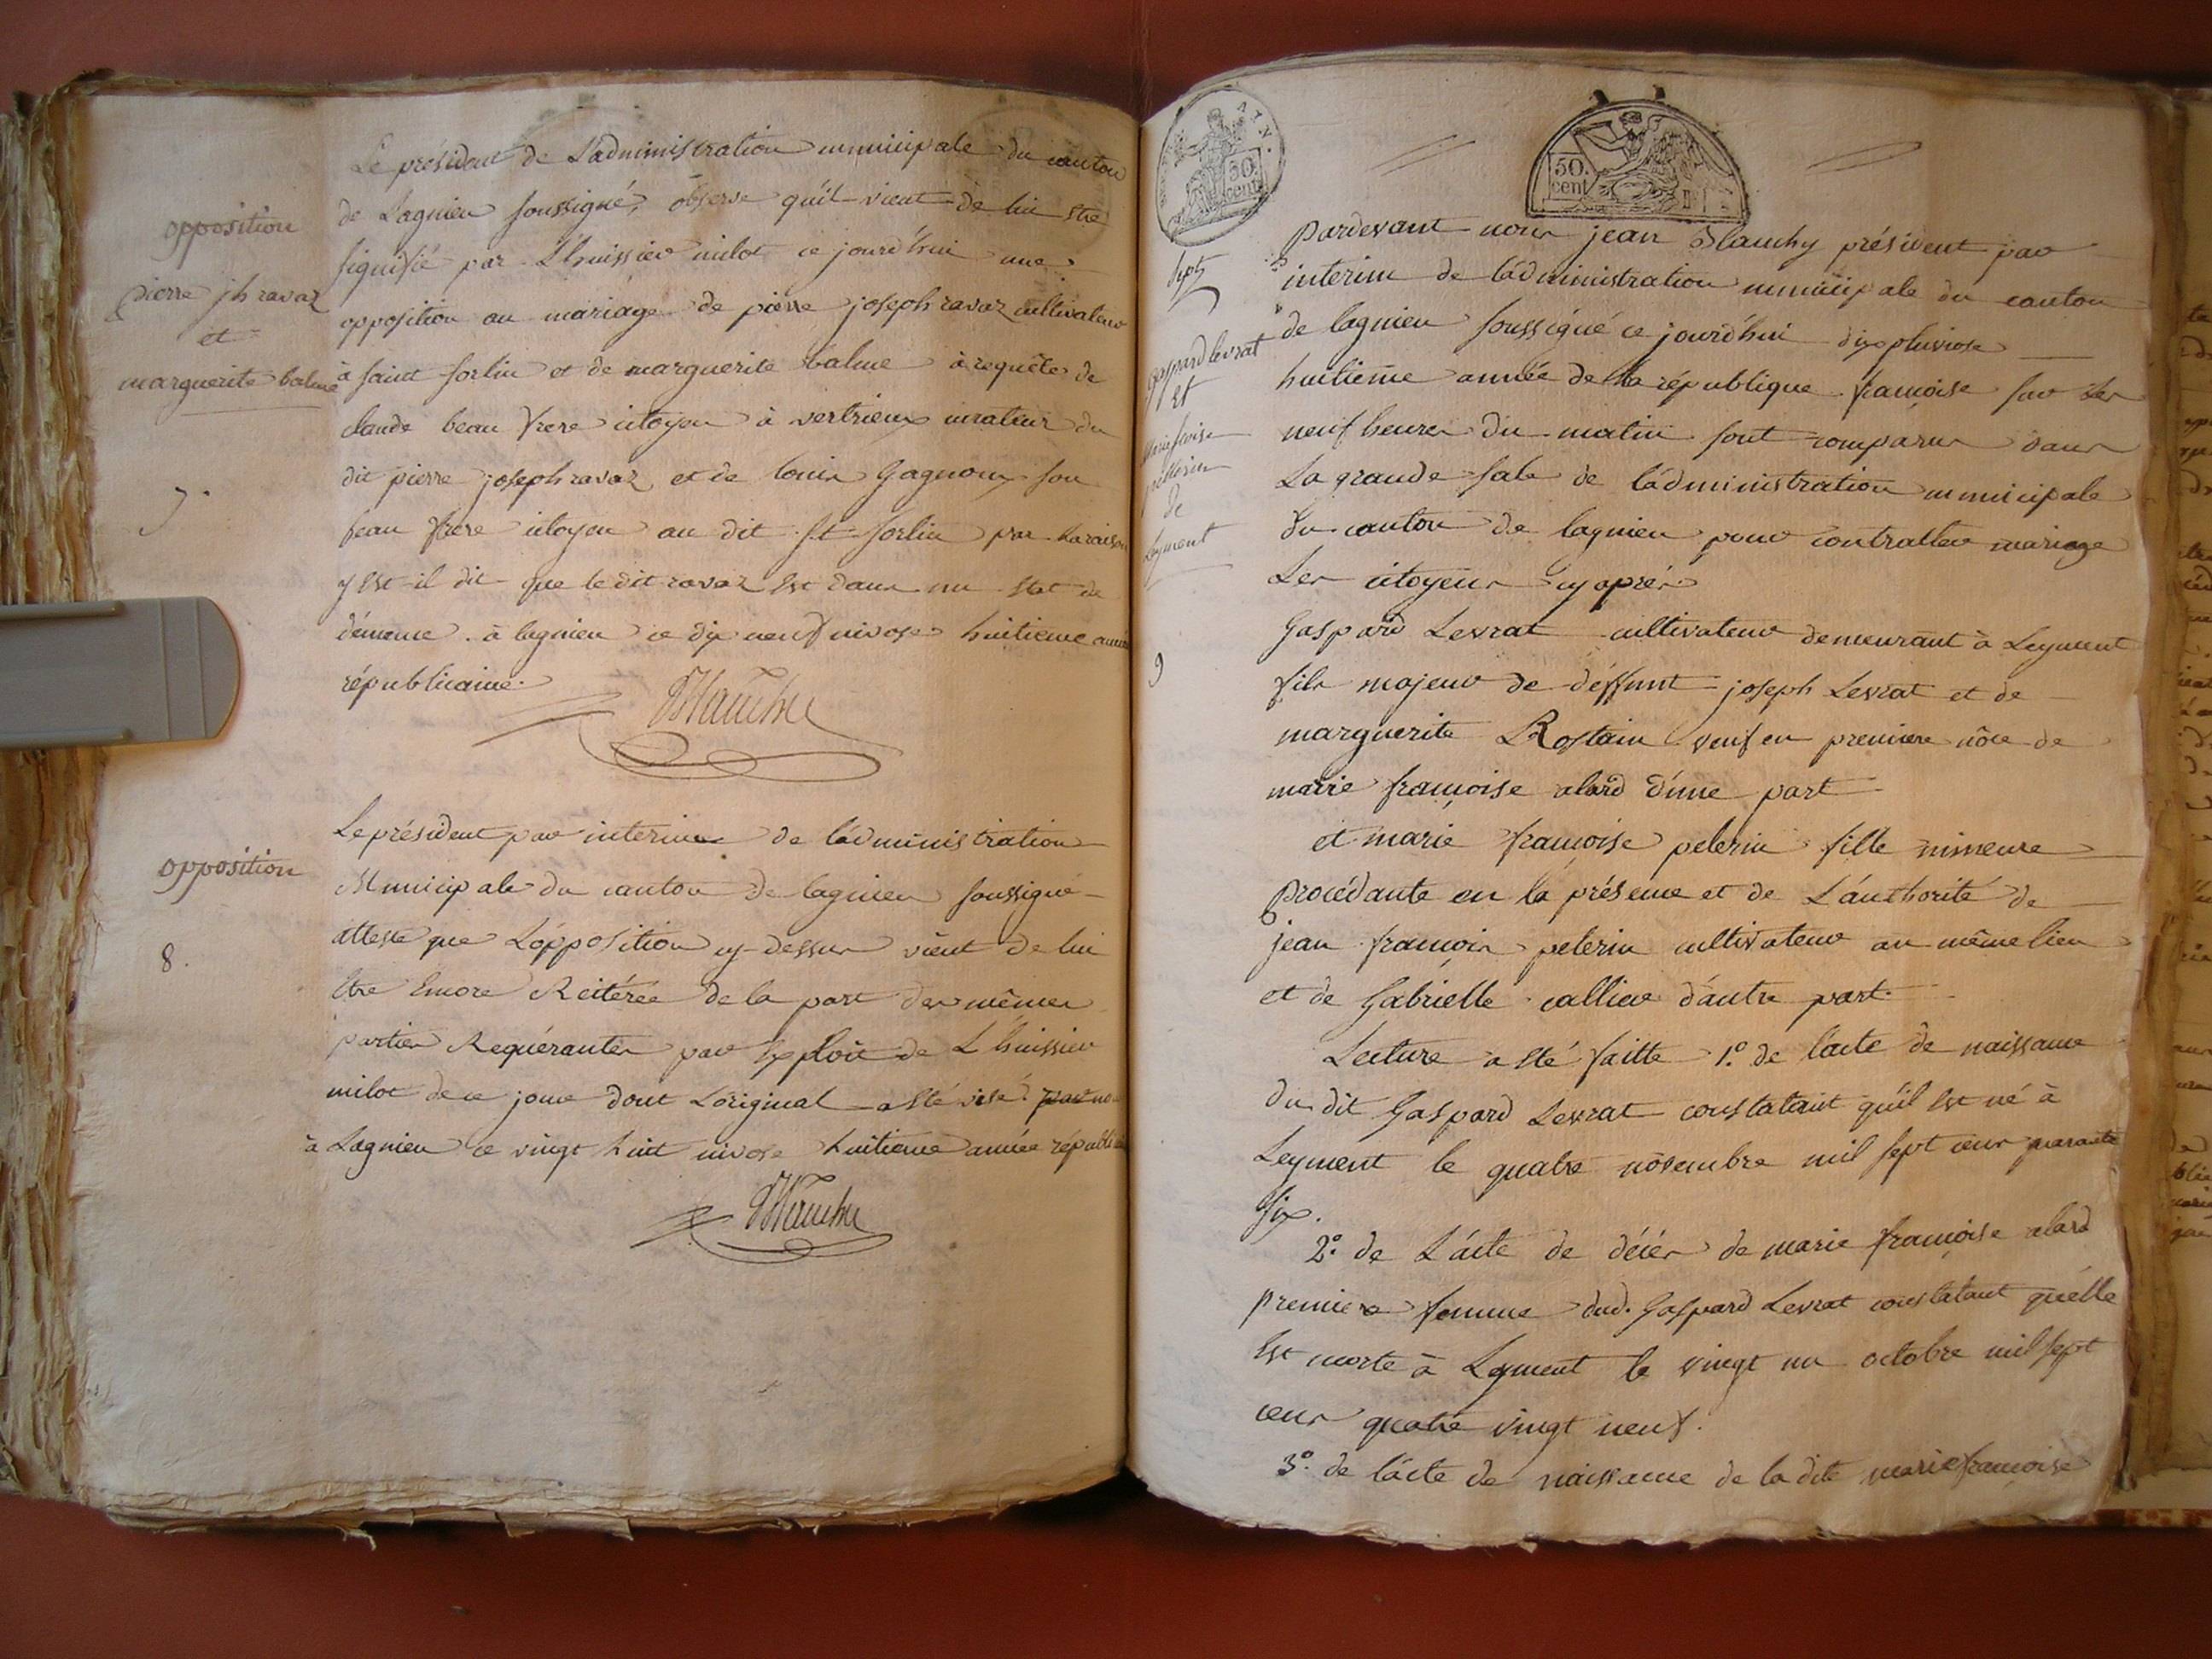 Le président de L'administration municipale du canton
de Lagnieu soussigné, observe qu'il vient de lui etre
opposition
signifié par L'huissier milot ce jourd'hui une
pierre jh ravaz
et
marguerite balme
opposition au mariage de pierre joseph ravaz cultivateur
à saint sorlin et de marguerite balme à requête de
claude beau frere citoyen à vertrieux curateur du
7.
dit pierre joseph ravaz et de louis Gagnoux son
beau frere citoyen au dit St sorlin par la raison
y est-il dit que le dit ravaz est dans un etat de
démence. à lagnieu ce dix neuf nivose huitieme année
républicaine.
Le président par interim de l'administration
opposition
Municipale du canton de lagnieu soussigné
atteste que L'opposition cy-dessus vient de lui
8.
etre Encore Réitérée de la part des mêmes
parties Requérantes par Exploit de L'huissier
milot de ce jour dont L'original a eté visé par nous
à Lagnieu ce vingt huit nivose huitieme année républicaine
AN.
50.
cent
50.
cent
Pardevant nous jean Blanchy président par
interim de l'administration municipale du canton
de lagnieu soussigné ce jourd'hui dix pluviose
gaspard levrat
et
pellerin
de
Leyment
huitieme année de la république françoise sur les
neuf heures du matin sont comparus dans
La grande sale de l'administration municipale
du canton de lagnieu pour contracter mariage
Les citoyens cy après
Gaspard Levrat cultivateur demeurant à Leyment
9
fils majeur de deffunt joseph Levrat et de
marguerite Rostain veuf en premiere nôce de
marie françoise alard d'une part
et marie françoise pelerin fille mineure
Procédante en la présence et de L'authorité de
jean françois pelerin cultivateur au même lieu
et de Gabrielle callier d'autre part.
Lecture a eté faitte 1.º de l'acte de naissance
du dit Gaspard Levrat constatant qu'il est né à
Leyment le quatre novembre mil sept cens quarante
six.
2.º de L'acte de décès de marie françoise alard
premiere femme dud. Gaspard Levrat constatant qu'elle
est morte à Leyment le vingt un octobre mil sept
cens quatre vingt neuf.
3.º de l'acte de naissance de la dite marie françoise